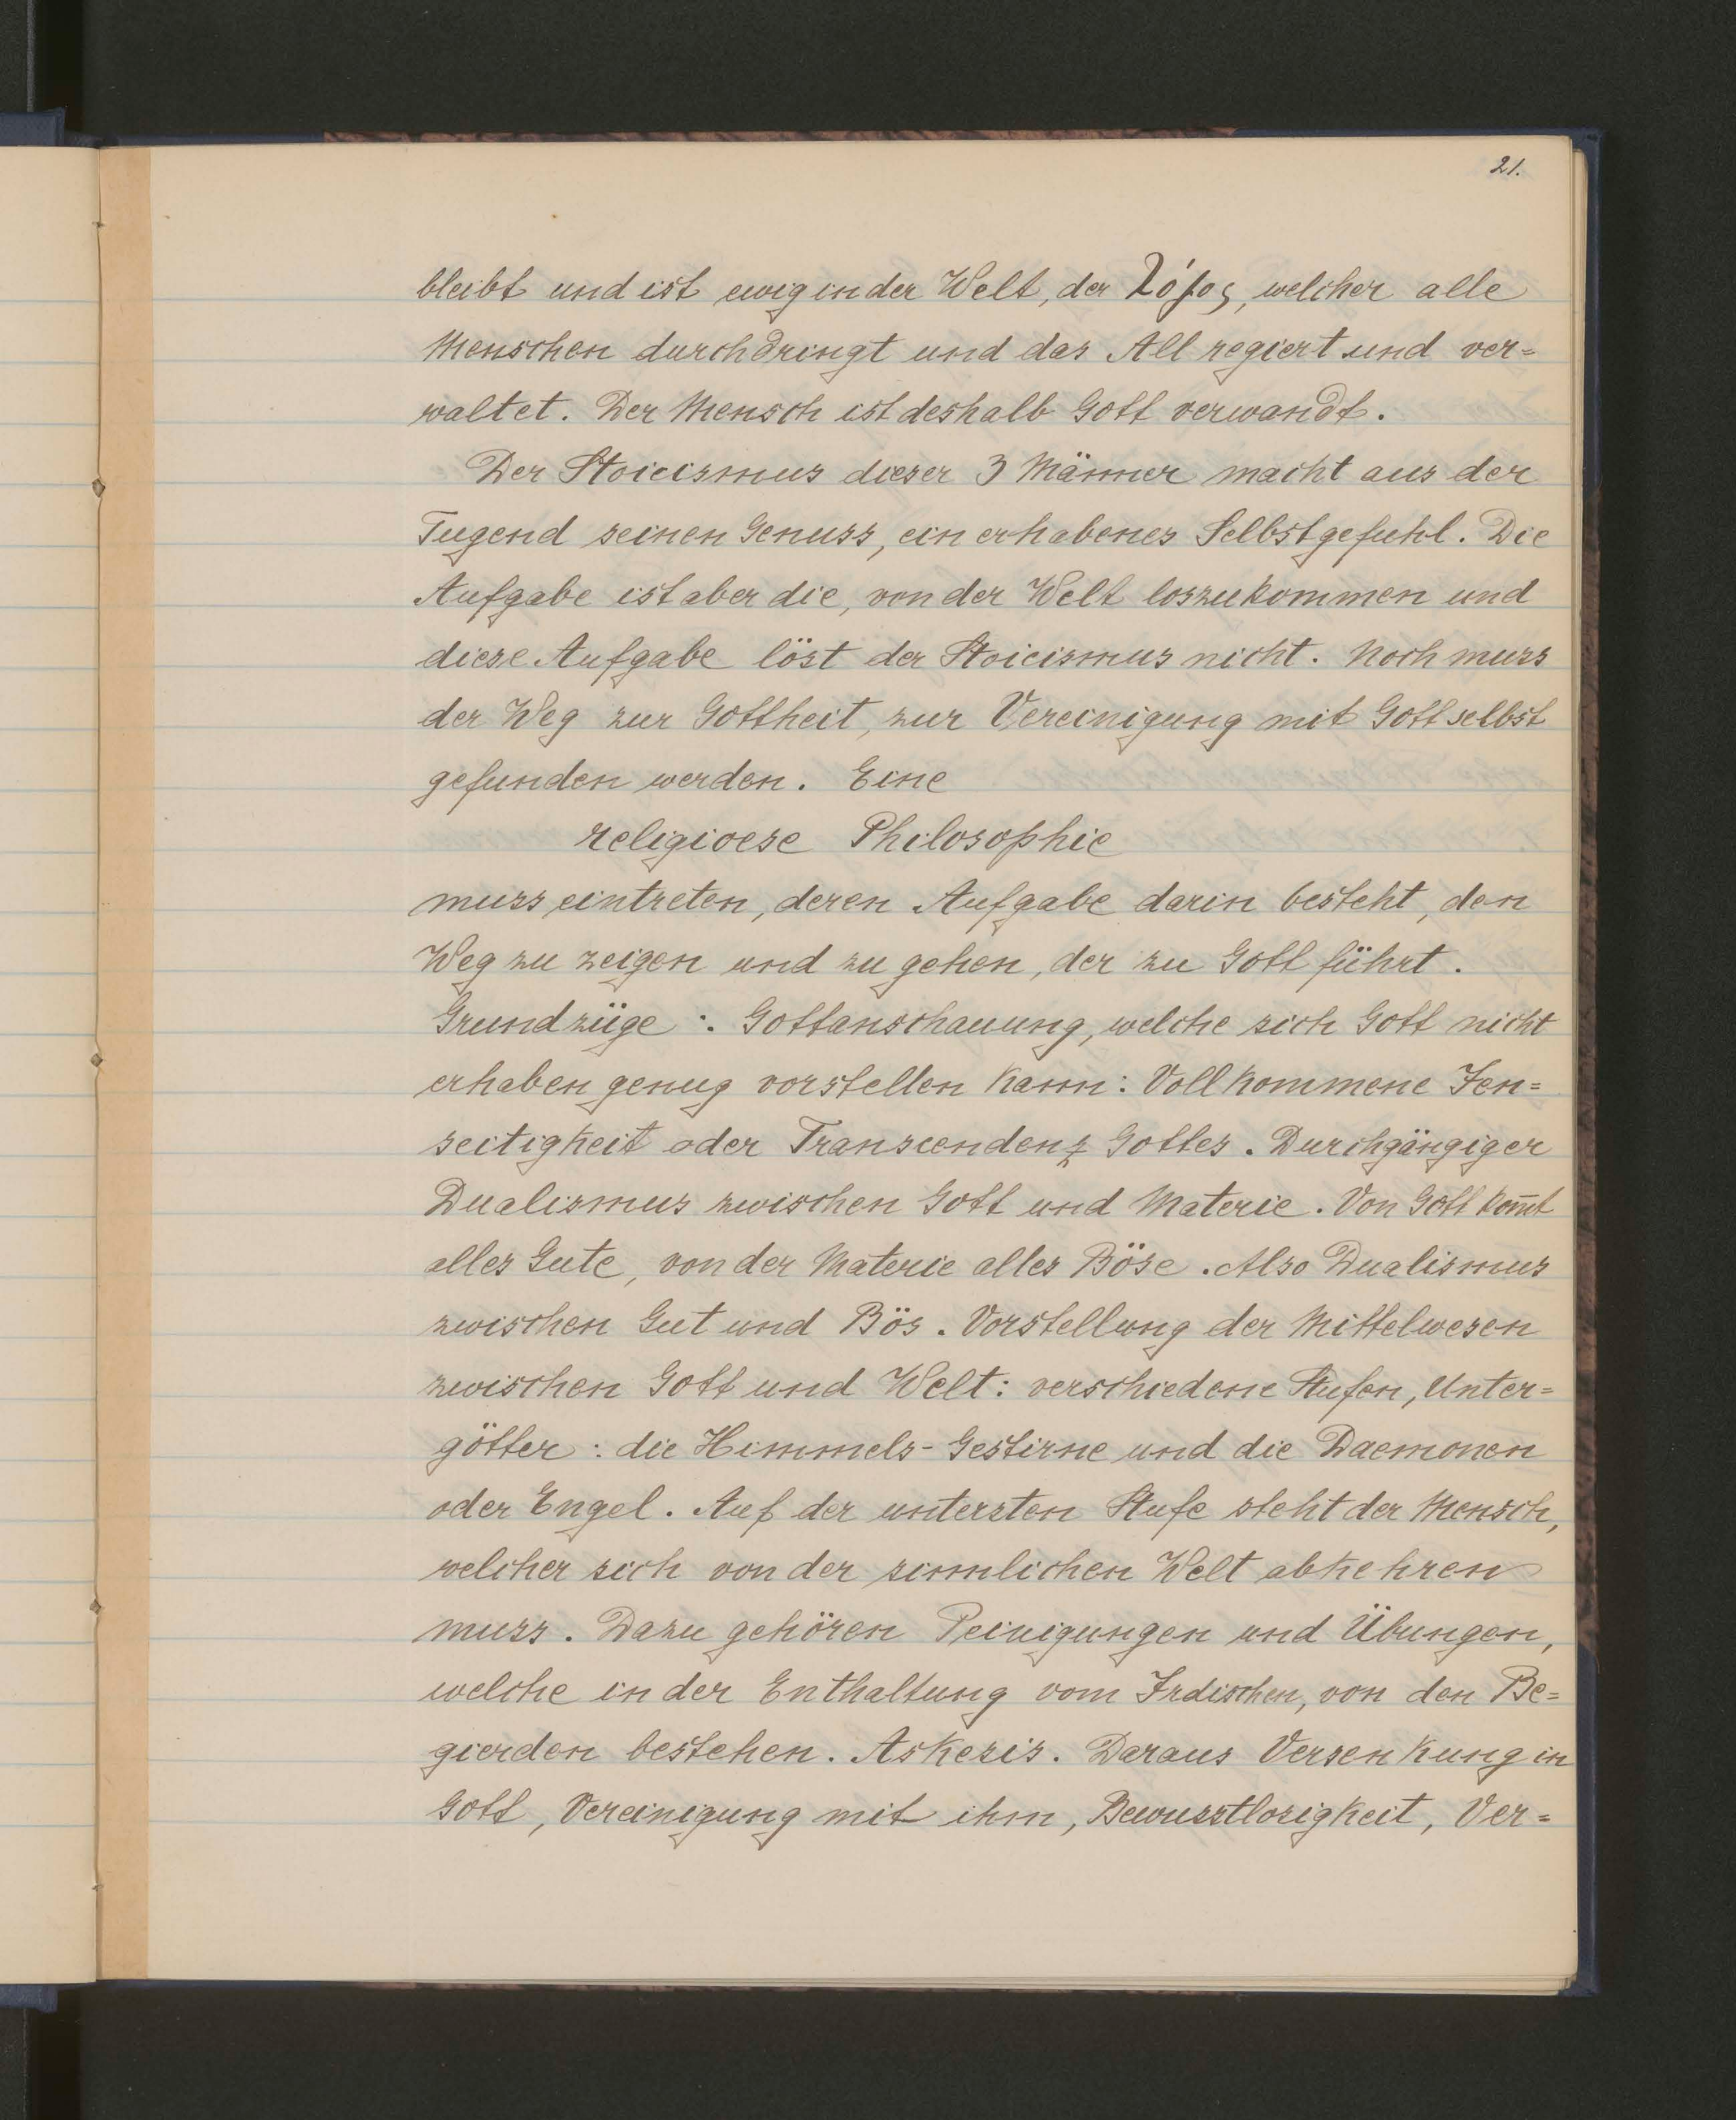 21.
bleibt und ist ewig in der Welt, der λόγος, welcher alle
Menschen durchdringt und das All regiert und ver=
waltet. Der Mensch ist deshalb Gott verwandt.
Der Stoicismus dieser 3 Männer macht aus der
Tugend seinen Genuss, ein erhabenes Selbstgefuhl. Die
Aufgabe ist aber die, von der Welt loszukommen und
diese Aufgabe löst der Stoicismus nicht. Noch muss
der Weg zur Gottheit, zur Vereinigung mit Gott selbst
gefunden werden. Eine
religioese Philosophie
muss eintreten, deren Aufgabe darin besteht, den
Weg zu zeigen und zu gehen, der zu Gott führt.
Grundzüge :. Gottanschauung, welche sich Gott nicht
erhaben genug vorstellen kann: Vollkommene Jen=
seitigkeit oder Transcendenz Gottes. Durchgängiger
Dualismus zwischen Gott und Materie. Von Gott kom̅t
alles Gute, von der Materie alles Böse. Also Dualismus
zwischen Gut und Bös. Vorstellung der Mittelwesen
zwischen Gott und Welt: verschiedene Stufen, Unter=
götter: die Himmels-Gestirne und die Daemonen
oder Engel. Auf der untersten Stufe steht der Mensch,
welcher sich von der sinnlichen Welt abkehren
muss. Dazu gehören Peinigungen und Übungen,
welche in der Enthaltung vom Irdischen, von den Be=
gierden bestehen. Askesis. Daraus Versenkung in
Gott, Vereinigung mit ihm, Bewusstlosigkeit, Ver=